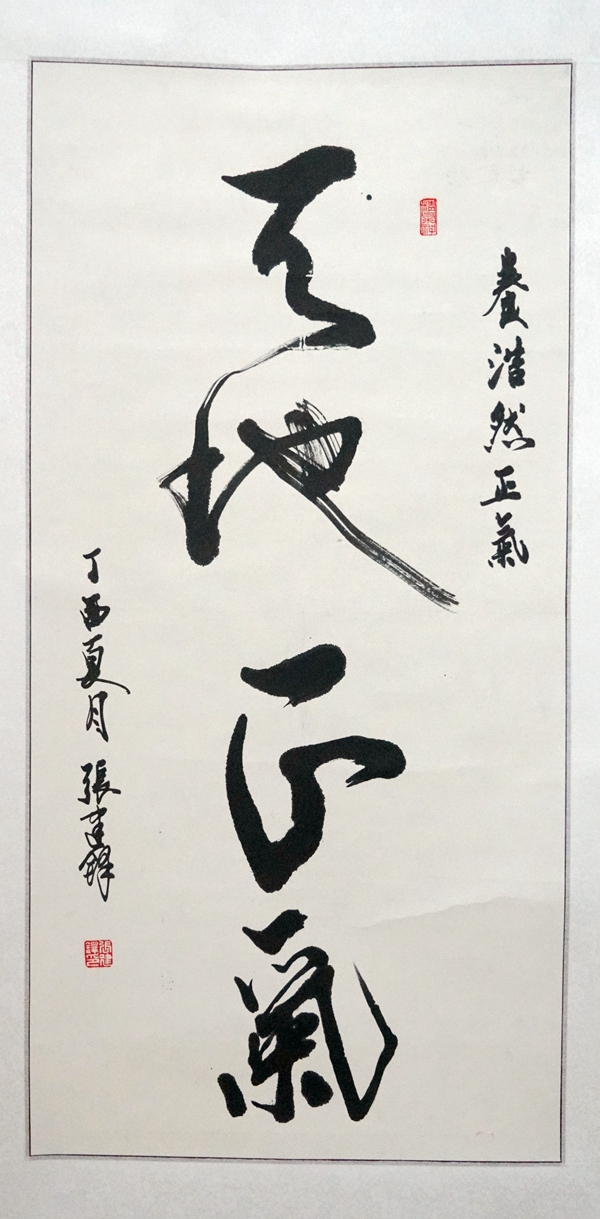 養浩然正氣
天地正氣
丁酉夏月 張建鋒